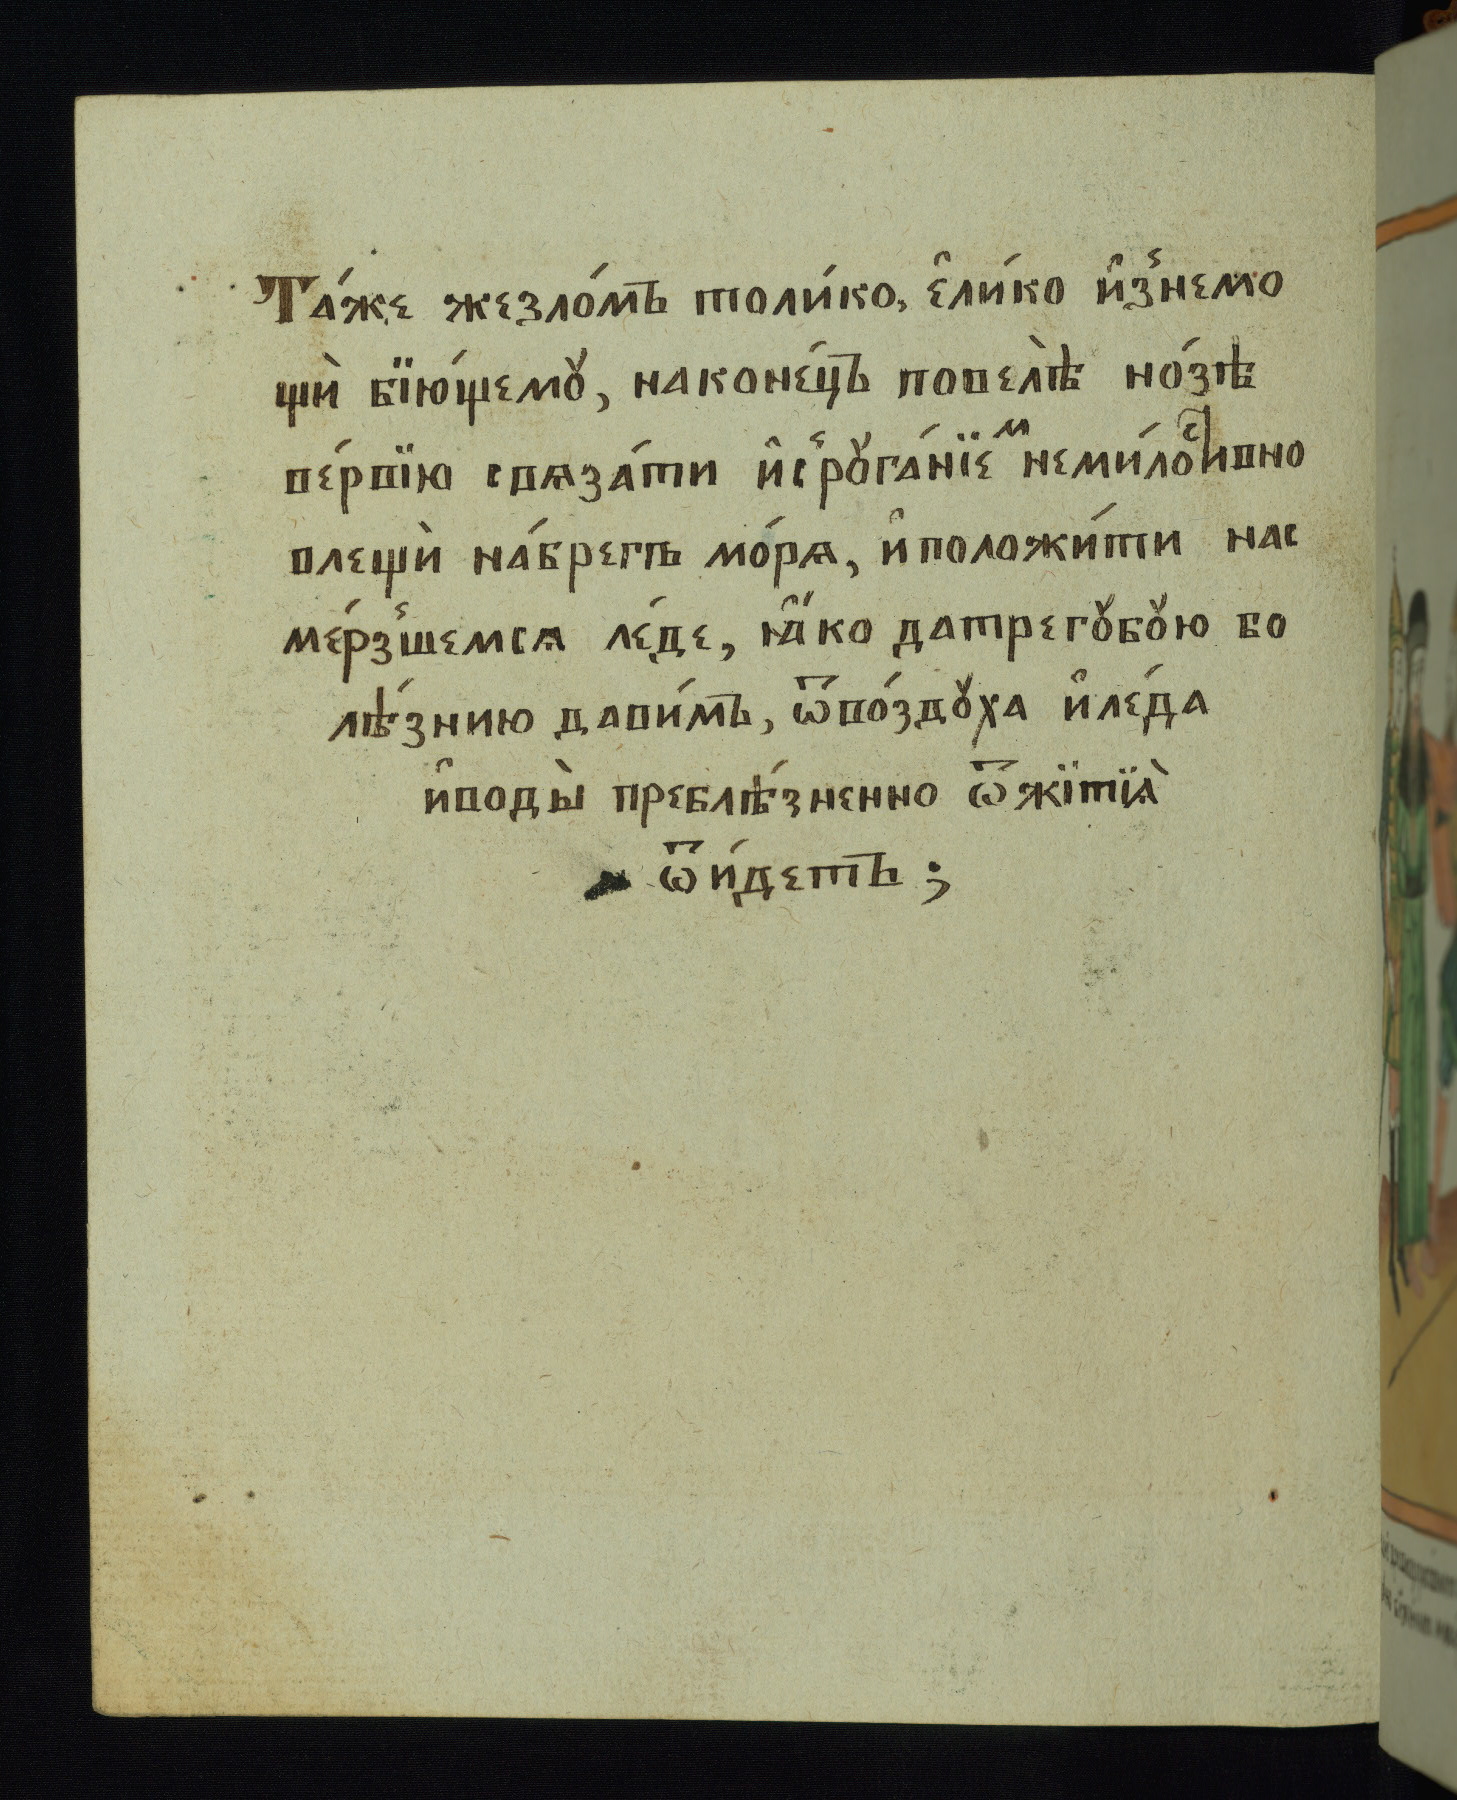 Та́же жезло́мъ толи́ко, е҆ли́ко и҆з̾немо
щѝ бїю́щемꙋ, наконе́цъ повелѣ̀ но́зѣ
ве́рвїю свѧза́ти и҆с̾рꙋга́нїеⷨ неми́лоⷭ҇ивно
влещѝ на́брегъ мо́рѧ, и҆положи́ти нас
ме́рз̾шемсѧ ле́де, ꙗ҆́ко датрегꙋбою бо
лѣ́знию дави́мъ, ѿво́здꙋха и҆ле́да
и҆воды̀ преблѣ́зненно ѿжїтїѧ̀
ѿи́детъ ;